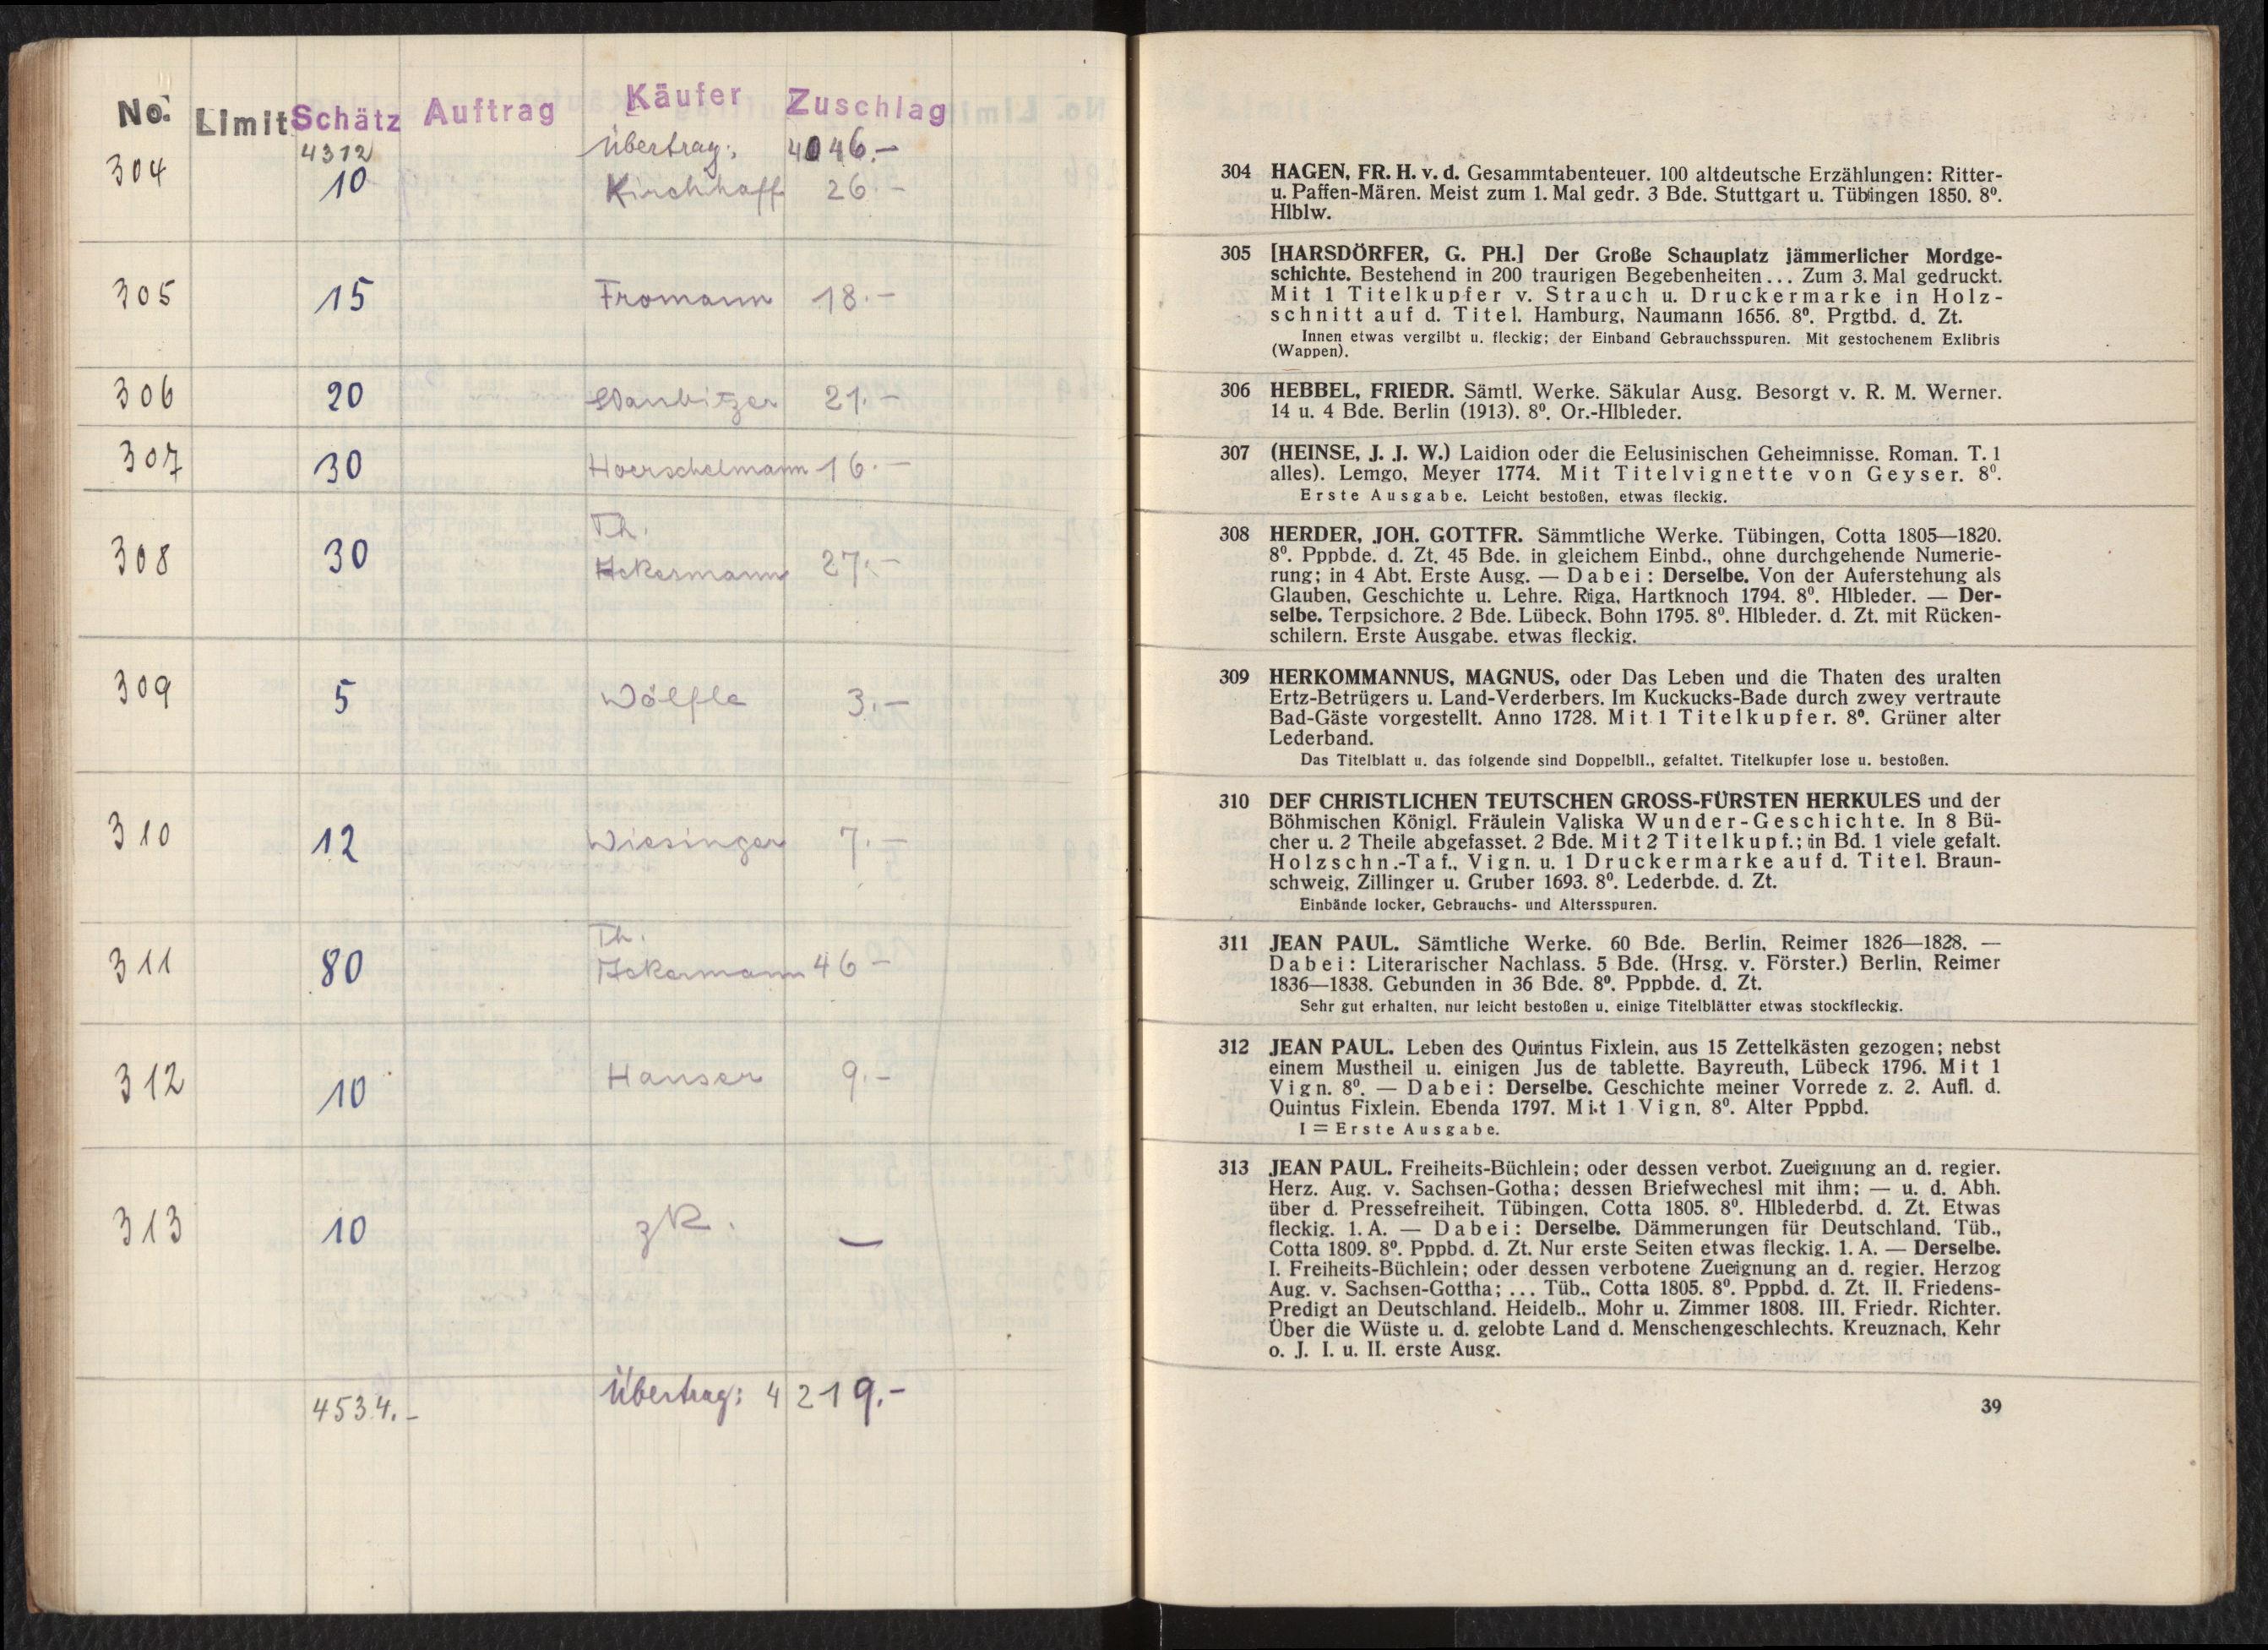 No. Limit Schätz Auftrag Käufer Zuschlag
4312 Übertrag: 4046.—
304 10 Kirchhoff 26.—
305 15 Fromann 18.—
306 20 21.—
307 30 Hoerschelmann 16.—
308 30 Th. Ackermann 27.—
309 5 Wölfle 3.—
310 12 Wiesinger 7.—
311 80 Th. Ackermann 46 —
312 10 Hauser 9.—
313 10 zR. —
4534.— Übertrag: 4219.—
304 HAGEN, FR. H. v. d. Gesammtabenteuer. 100 altdeutsche Erzählungen: Ritter-
u. Paffen-Mären. Meist zum 1. Mal gedr. 3 Bde. Stuttgart u. Tübingen 1850. 8⁰.
Hlblw.
305 [HARSDÖRFER, G. PH.] Der Große Schauplatz jämmerlicher Mordge-
schichte. Bestehend in 200 traurigen Begebenheiten . . . Zum 3. Mal gedruckt.
Mit 1 Titelkupfer v. Strauch u. Druckermarke in Holz-
schnitt auf d. Titel. Hamburg, Naumann 1656. 8⁰. Prgtbd. d. Zt.
Innen etwas vergilbt u. fleckig; der Einband Gebrauchsspuren. Mit gestochenem Exlibris
(Wappen).
306 HEBBEL, FRIEDR. Sämtl. Werke. Säkular Ausg. Besorgt v. R. M. Werner.
14 u. 4 Bde. Berlin (1913). 8⁰. Or.-Hlbleder.
307 (HEINSE, J. J. W.) Laidion oder die Eelusinischen Geheimnisse. Roman. T. 1
alles). Lemgo, Meyer 1774. Mit Titelvignette von Geyser. 8⁰.
Erste Ausgabe. Leicht bestoßen, etwas fleckig.
308 HERDER, JOH. GOTTFR. Sämmtliche Werke. Tübingen, Cotta 1805—1820.
8⁰. Pppbde. d. Zt. 45 Bde. in gleichem Einbd., ohne durchgehende Numerie-
rung; in 4 Abt. Erste Ausg. — Dabei: Derselbe. Von der Auferstehung als
Glauben, Geschichte u. Lehre. Riga, Hartknoch 1794. 8⁰. Hlbleder. — Der-
selbe. Terpsichore. 2 Bde. Lübeck, Bohn 1795. 8⁰. Hlbleder. d. Zt. mit Rücken-
schilern. Erste Ausgabe. etwas fleckig.
309 HERKOMMANNUS, MAGNUS, oder Das Leben und die Thaten des uralten
Ertz-Betrügers u. Land-Verderbers. Im Kuckucks-Bade durch zwey vertraute
Bad-Gäste vorgestellt. Anno 1728. Mit 1 Titelkupfer. 8⁰. Grüner alter
Lederband.
Das Titelblatt u. das folgende sind Doppelbll., gefaltet. Titelkupfer lose u. bestoßen.
310 DEF CHRISTLICHEN TEUTSCHEN GROSS-FÜRSTEN HERKULES und der
Böhmischen Königl. Fräulein Valiska Wunder-Geschichte. In 8 Bü-
cher u. 2 Theile abgefasset. 2 Bde. Mit 2 Titelkupf.; in Bd. 1 viele gefalt.
Holzschn.-Taf., Vign. u. 1 Druckermarke auf d. Titel. Braun-
schweig, Zillinger u. Gruber 1693. 8⁰. Lederbde. d. Zt.
Einbände locker, Gebrauchs- und Altersspuren.
311 JEAN PAUL. Sämtliche Werke. 60 Bde. Berlin, Reimer 1826—1828. —
Dabei: Literarischer Nachlass. 5 Bde. (Hrsg. v. Förster.) Berlin, Reimer
1836—1838. Gebunden in 36 Bde. 8⁰. Pppbde. d. Zt.
Sehr gut erhalten, nur leicht bestoßen u. einige Titelblätter etwas stockfleckig.
312 JEAN PAUL. Leben des Quintus Fixlein, aus 15 Zettelkästen gezogen; nebst
einem Mustheil u. einigen Jus de tablette. Bayreuth, Lübeck 1796. Mit 1
Vign. 8⁰. — Dabei: Derselbe. Geschichte meiner Vorrede z. 2. Aufl. d.
Quintus Fixlein. Ebenda 1797. Mit 1 Vign. 8⁰. Alter Pppbd.
I = Erste Ausgabe.
313 JEAN PAUL. Freiheits-Büchlein; oder dessen verbot. Zueignung an d. regier.
Herz. Aug. v. Sachsen-Gotha; dessen Briefwechesl mit ihm; — u. d. Abh.
über d. Pressefreiheit. Tübingen, Cotta 1805. 8⁰. Hlblederbd. d. Zt. Etwas
fleckig. 1. A. — Dabei: Derselbe. Dämmerungen für Deutschland. Tüb.,
Cotta 1809. 8⁰. Pppbd. d. Zt. Nur erste Seiten etwas fleckig. 1. A. — Derselbe.
I. Freiheits-Büchlein; oder dessen verbotene Zueignung an d. regier. Herzog
Aug. v. Sachsen-Gottha; . . . Tüb., Cotta 1805. 8⁰. Pppbd. d. Zt. II. Friedens-
Predigt an Deutschland. Heidelb., Mohr u. Zimmer 1808. III. Friedr. Richter.
Über die Wüste u. d. gelobte Land d. Menschengeschlechts. Kreuznach, Kehr
o. J. I. u. II. erste Ausg.
39